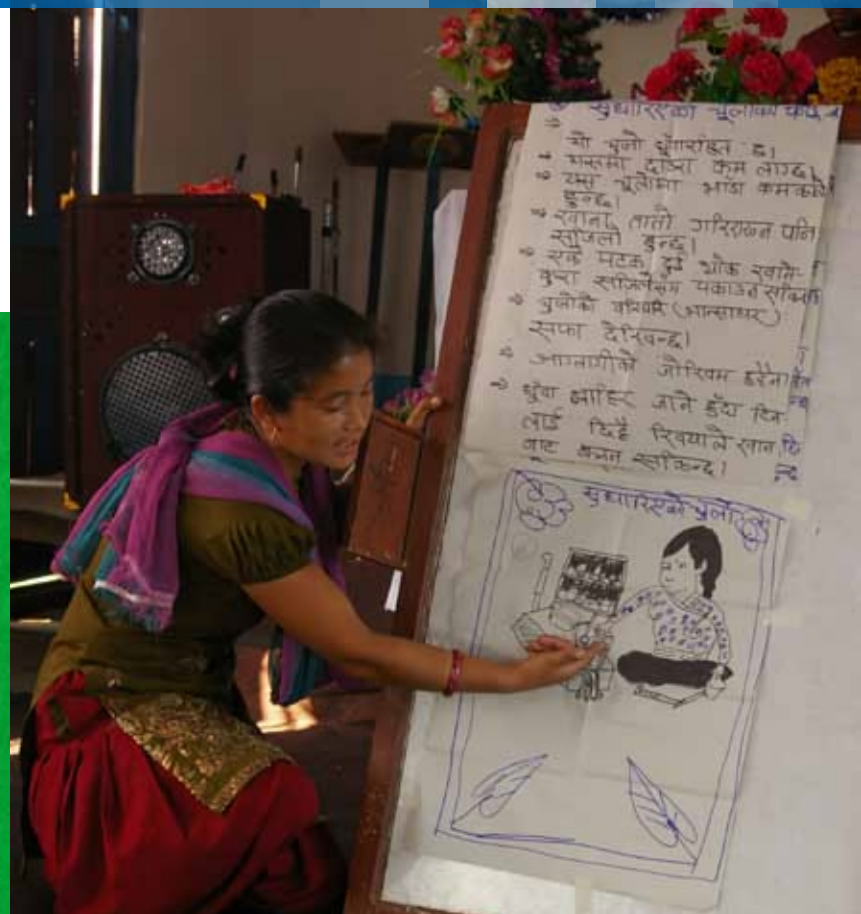 सुधारिएको चूलोका
यो चुलो धुँवारहित छ।
यसमा दाउरा कम लाग्छ।
यस चूलोमा भाडा कम कालो
हुन्छ।
खाना तातो गरिराख्न पनि
सजिलो हुन्छ।
एकै पटक दुई थोक खाने
कुरा सजिलैसंग पकाउन सकिन्छ
चुलोको वरिपरि (भान्साघर)
सफा देखिन्छ।
आगलागीको जोखिम हुदैन
धुँवा बाहिर जाने हुँदा
लाई
बाट बच्न सकिन्छ।
सुधारिएको चुलो